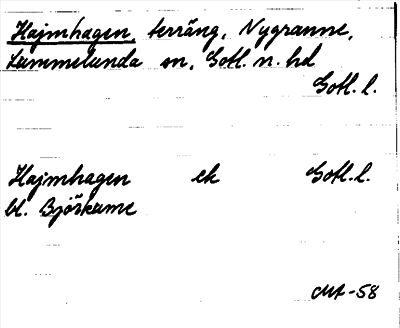 Hajmhagen, terräng, Nygranne,
Lummelunda sn, Gotl. n. hd
Gotl. l.
Hajmhagen ek Gotl. l.
bl. Björkume
-58